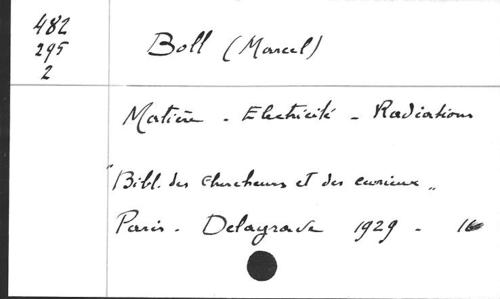 482
295
2
Boll (Marcel)
Matière - Electricité - Radiations
"Bibl. des chercheurs et des curieux„
Paris - Delagrave 1929 - 16